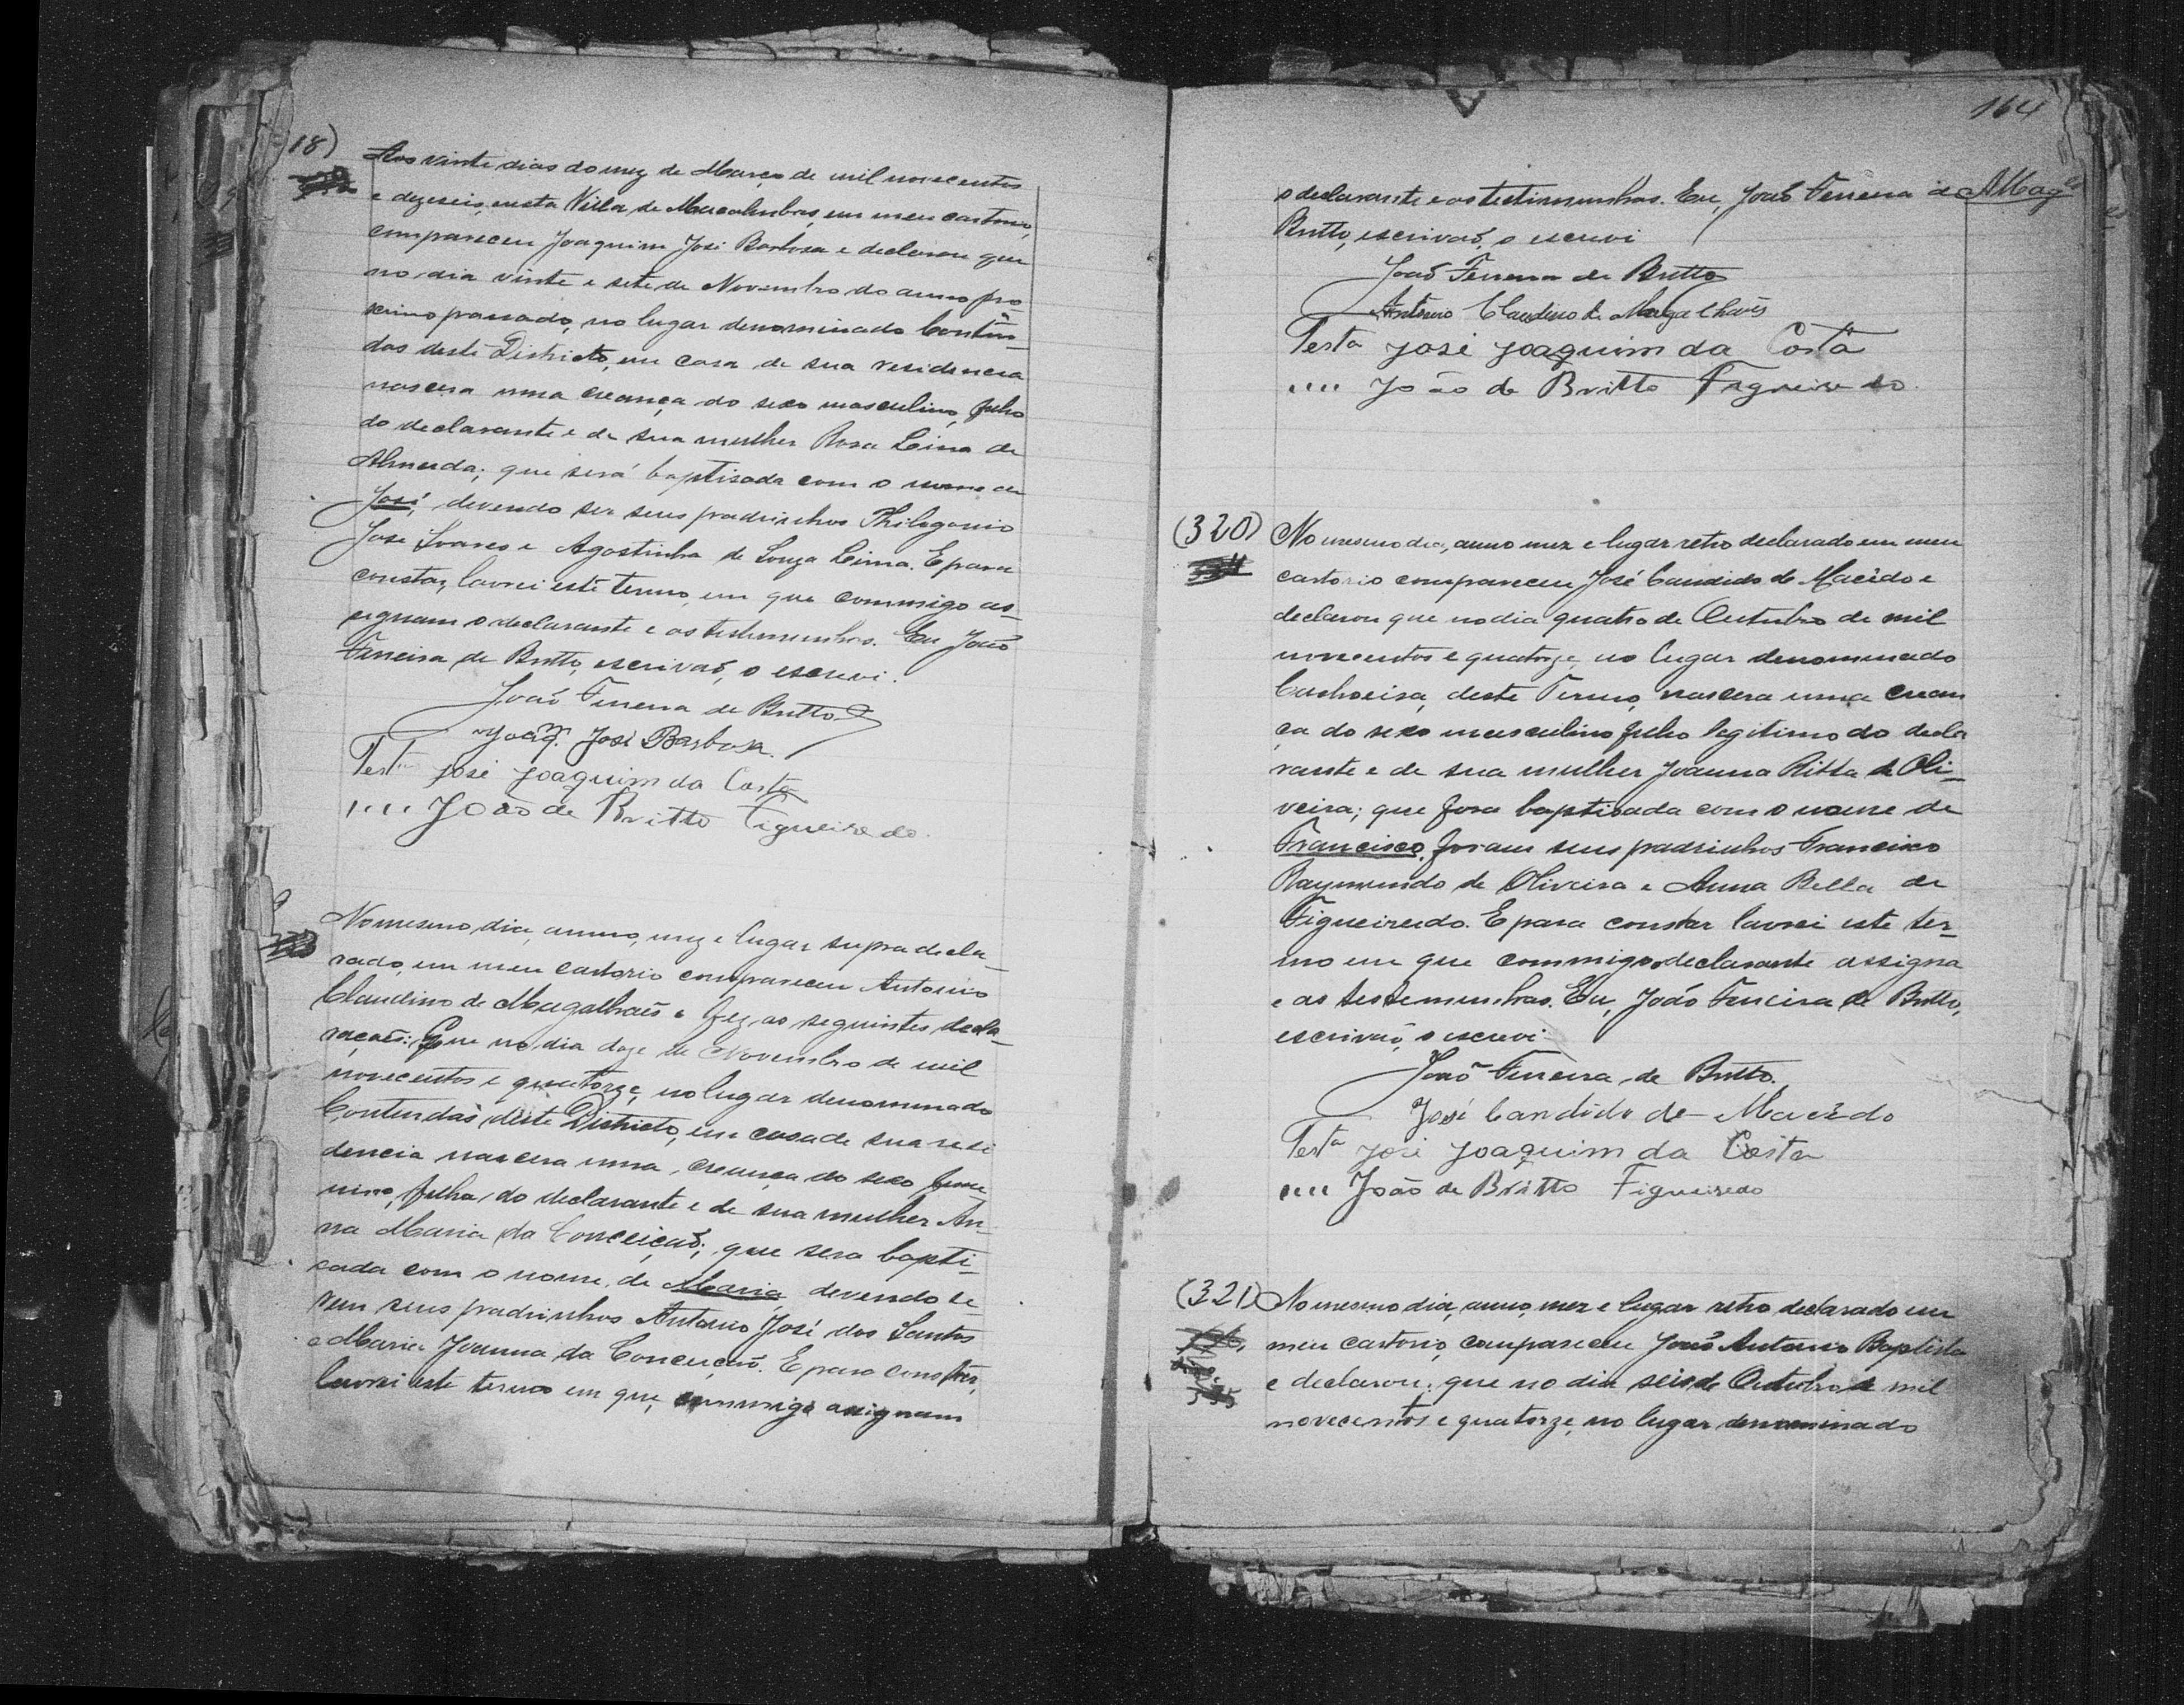 18)
Aos vinte dias do mez de Março de mil novecentos
e dezeseis, nesta Villa de Macahubas, em meu cartorio,
compareceu Joaquim José Barbosa e declarou que
no dia vinte e sete de Novembro do anno pro-
ximo passado, no lugar denominado Conten-
das deste Districto, em casa de sua residencia
nascera uma creança do sexo masculino, filho
do declarante e de sua mulher Rosa Lina de
Almeida; que será baptisada com o nome de
José, devendo ser seus padrinhos Philogonio
José Soares e Agostinha de Souza Lima. E para
constar, lavrei este termo, em que commigo as-
signam o declarante e as testemunhas. Eu João
Ferreira de Britto, escrivaõ, o escrevi.
Joaõ Ferreira de Britto
Joaqm. José Barbosa.
Testa José Joaquim da Costa
'''' João de Britto Figueiredo.
9
No mesmo dia, anno, mez e lugar supra decla-
rado, em meu cartorio compareceu Antonio
Claudino de Magalhaẽs e fez as seguintes decla-
raçoẽs: Que no dia doze de Novembro de mil
novecentos e quatorze, no lugar denominado
Contendas deste Districto, em casa de sua resi
dencia nascera uma creança do sexo feme
nino, filha do declarante e de sua mulher An-
na Maria da Conceiçaõ; que sera bapti-
sada com o nome de Maria devendo se
rem seus padrinhos Antonio José dos Santos
e Maria Joanna da Conceiçaõ. E para constar,
lavrei este termo em que, commigo assignam
164
o declarante e as testimunhas. Eu, Joaõ Ferreira de
Magles
Britto, escrivaõ, o escrevi
Joaõ Ferreira de Britto
Antonio Claudino de Magalhaẽs
Testa José Joaquim da Costa
'''' João de Britto Figueiredo.
(320)
No mesmo dia, anno mez e lugar retro declarado em meu
cartorio compareceu José Candido de Macêdo e
declarou que no dia quatro de Outubro de mil
novecentos e quatorze, no lugar denominado
Cachoeira, deste Termo, nascera uma crean
ça do sexo masculino filho legitimo do decla
rante e de sua mulher Joanna Ritta de Oli-
veira; que fora baptisada com o nome de
Francisco, foram seus padrinhos Francisco
Raymundo de Oliveira e Anna Bella de
Figueiredo. E para constar lavrei este ter-
mo em que commigo o declarante assigna
e as testemunhas. Eu, João Ferreira de Britto,
escrivaõ o escrevi
Joaõ Ferreira de Britto.
José Candido de Macêdo
Testa José Joaquim da Costa
'''' João de Britto Figueiredo
(321)
No mesmo dia, anno, mez e lugar retro declarado em
meu cartorio, compareceu Joaõ Antonio Baptista
e declarou: que no dia seis de Outubro de mil
novecentos e quatorze, no lugar denominado